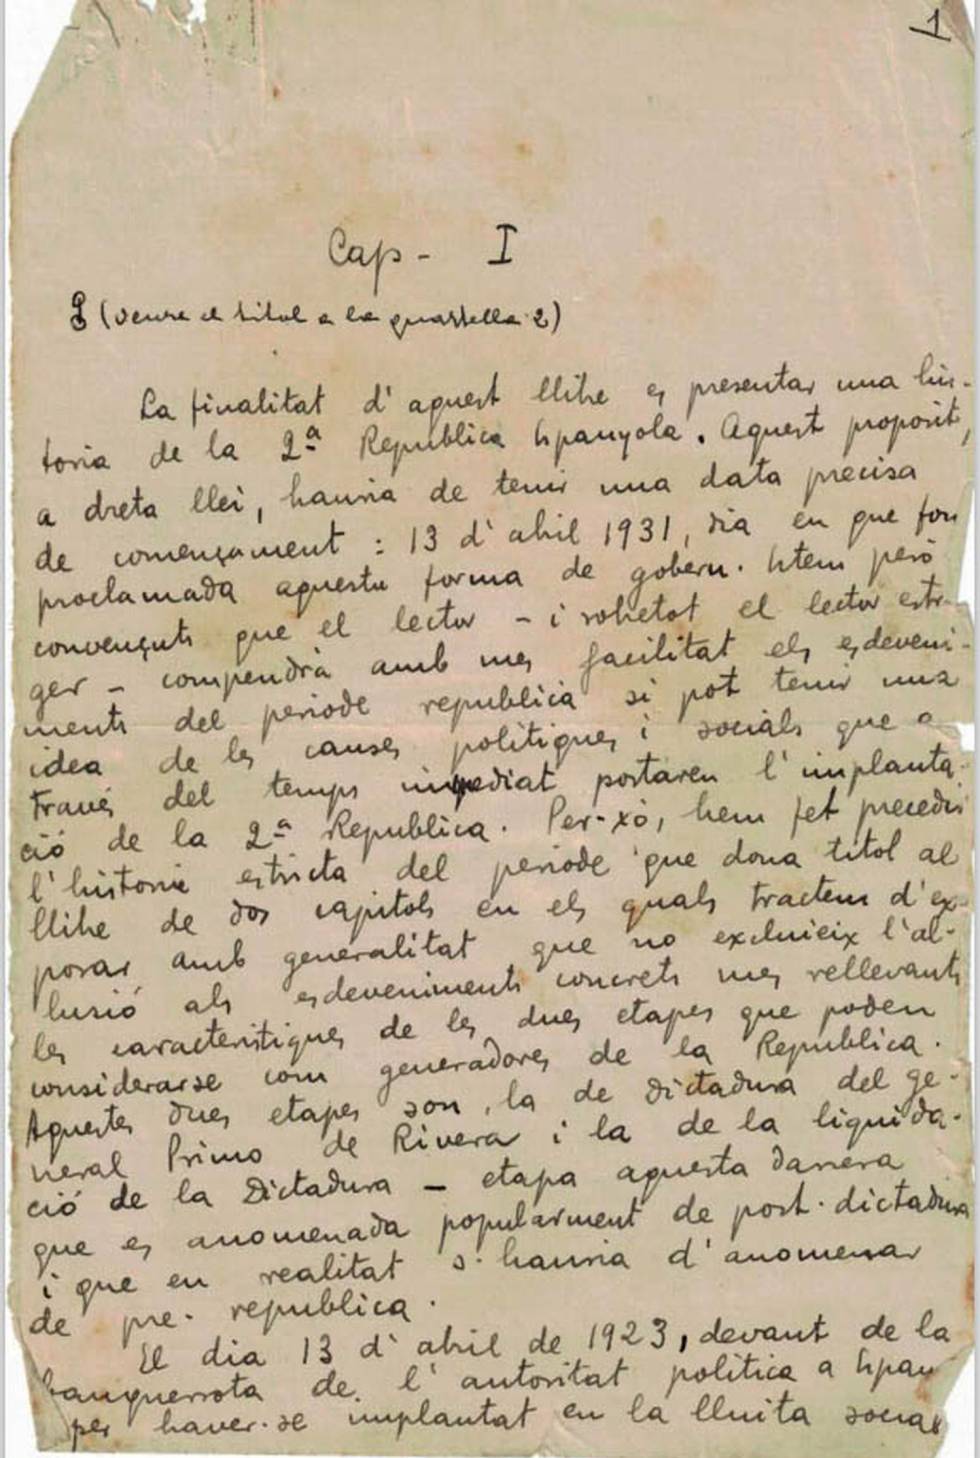 1
Cap - I
(veure el titol a la quartella 2)
La finalitat d'aquest llibre es presentar una his-
toria de la 2ª Republica Espanyola. Aquest proposit,
a dreta llei, hauria de tenir una data precisa
de començament : 13 d'abril 1931, dia en que fou
proclamada aquesta forma de gobern. Estem però
convençuts que el lector - i sobretot el lector estr-
ger - compendrà amb mes facilitat els esdeveni-
ments del periode republicà si pot tenir una
idea de les causes polítiques i socials que a
través del temps immediat portaren l'implanta-
ció de la 2ª Republica. Per-xò, hem fet precedir
l'historia estricta del periode que dona titol al
llibre de dos capitols en els quals tractem d'ex-
posar amb generalitat que no exclueix l'al-
lusió als esdeveniments concrets mes rellevants
les caracteristiques de les dues etapes que poden
considerarse com generadores de la Republica.
Aquestes dues etapes son, la de dictadura del ge-
neral Primo de Rivera i la de la liquida-
ció de la Dictadura - etapa aquesta darrera
que es anomenada popularment de post-dictadura
i que en realitat s'hauria d'anomenar
de pre-republica.
El dia 13 d'abril de 1923, devant de la
banquerrota de l'autoritat politica a Espan
per haver-se implantat en la lluita social